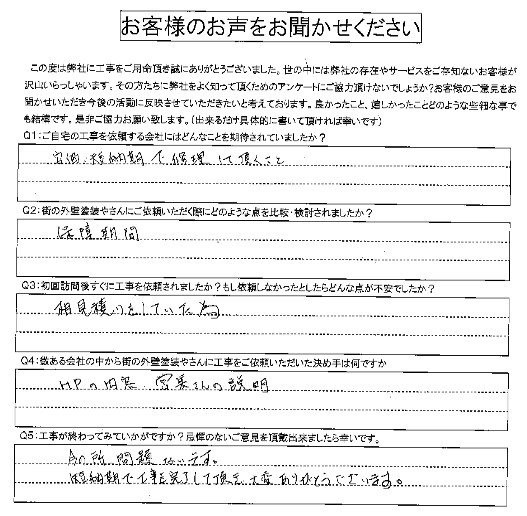 お客様のお声をお聞かせください
この度は弊社に工事をご用命頂き誠にありがとうございました。世の中には弊社の存在やサービスをご存知ないお客様が
沢山いらっしゃいます。その方たちに弊社をよく知って頂くためのアンケートにご協力頂けないでしょうか?お客様のご意見をお
聞かせいただき今後の活動に反映させていただきたいと考えております。良かったこと、嬉しかったことどのような些細な事で
も結構です。是非ご協力お願い致します。(出来るだけ具体的に書いて頂ければ幸いです)
Q1:ご自宅の工事を依頼する会社にはどんなことを期待されていましたか?
短納期で修理して頂くこと
Q2:街の外壁塗装やさんにご依頼いただく際にどのような点を比較・検討されましたか?
保障期間
Q3:初回訪問後すぐに工事を依頼されましたか?もし依頼しなかったとしたらどんな点が不安でしたか?
相見積りをしていた為
Q4:数ある会社の中から街の外壁塗装やさんに工事をご依頼いただいた決め手は何ですか
HPの内容 営業さんの説明
Q5:工事が終わってみていかがですか?忌憚のないご意見を頂戴出来ましたら幸いです。
今の所問題ないです。
短納期で工事を完了して頂き大変ありがとうございます。